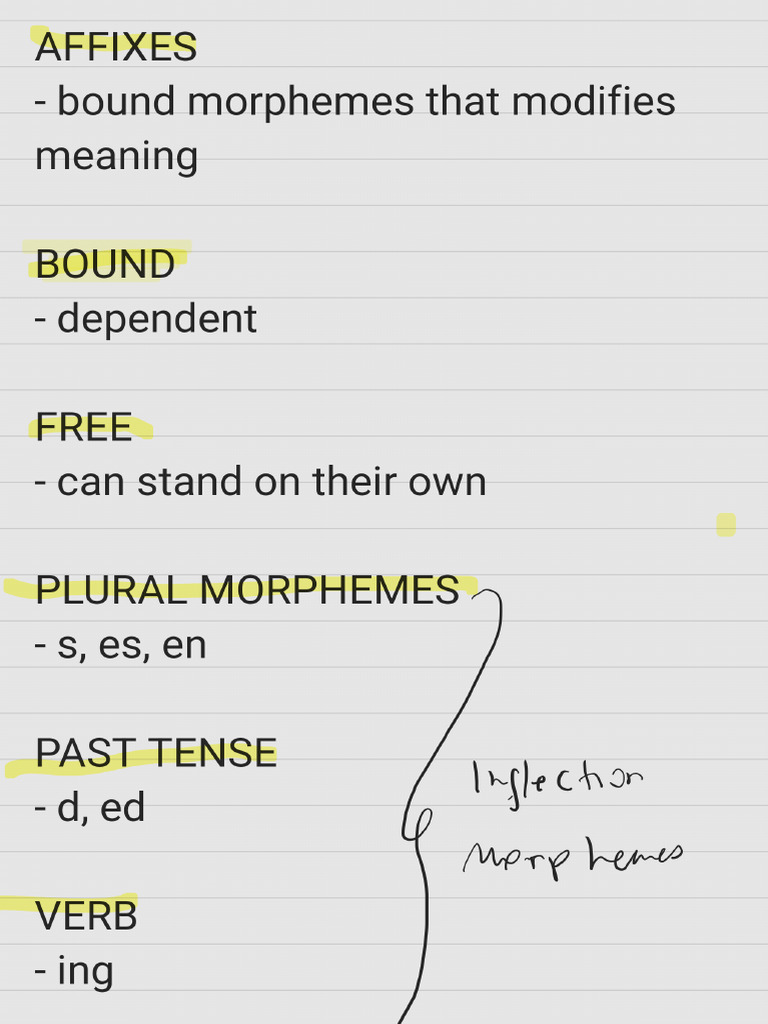 AFFIXES
- bound morphemes that modifies
meaning
BOUND
- dependent
FREE
- can stand on their own
PLURAL MORPHEMES
- s, es, en
PAST TENSE
- d, ed
Inflection
Morphemes
VERB
- ing